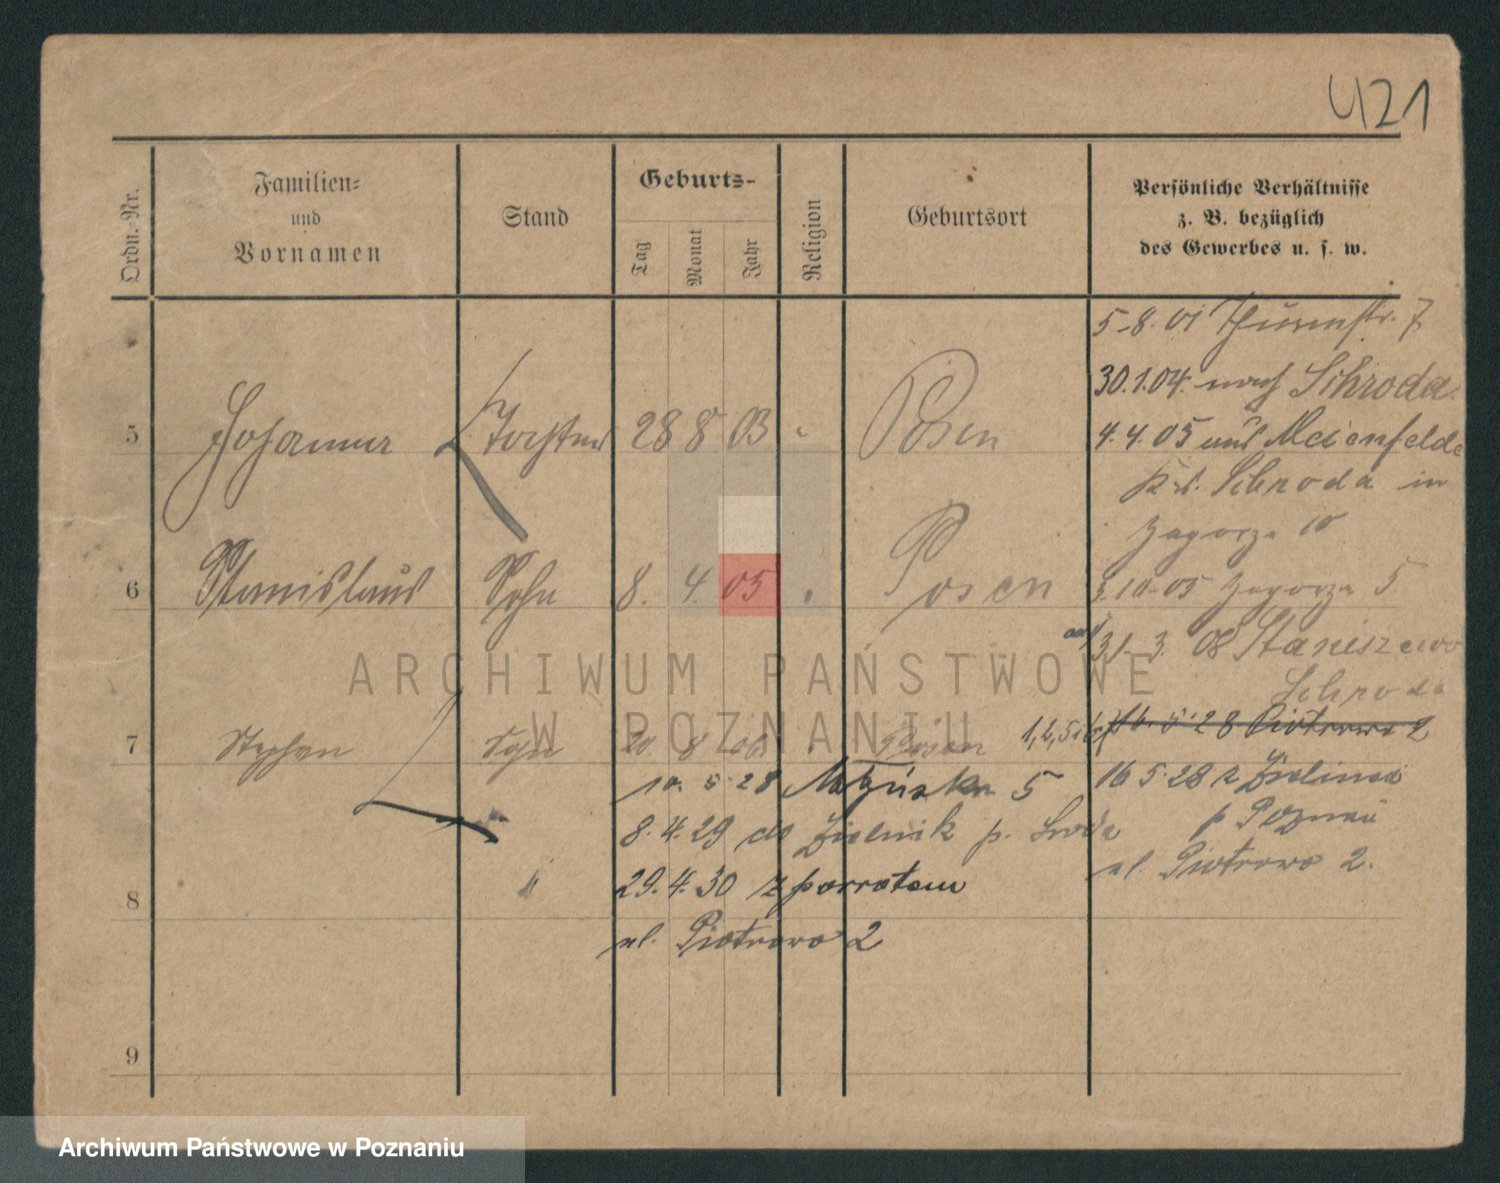 421
Ordn.-Nr.
Familien-
und
Vornamen
Stand
Geburts-
Tag
Monat
Jahr
Religion
Geburtsort
Persönliche Verhältnisse
z. B. bezüglich
des Gewerbes u. s. w.
5-8. 01 Thurmstr. 7
30.1.04. nach Schroda
5 Johanna Tochter 28 8 03 " Posen
4.4.05 aus Maienfelde
Kr. Schroda in
Zagorze 10
6 Stanislaus Sohn 8. 4. 05 " Posen
3.10.05 Zagorze 5
31. 3. 08 Staniszewo
Schroda
ARCHIWUM PAŃSTWOWE
W POZNANIU
7 Stephan Sohn 20 8 06 " Posen
5 28 Piotrowo 2
10. 5 28 5
16 5 28 z Zieliniec
p Poznań
ul. Piotrowo 2.
8. 4. 29 do Zielnik p. Środa
8
29. 4. 30 z powrotem
ul. Piotrowo 2
9
Archiwum Państwowe w Poznaniu